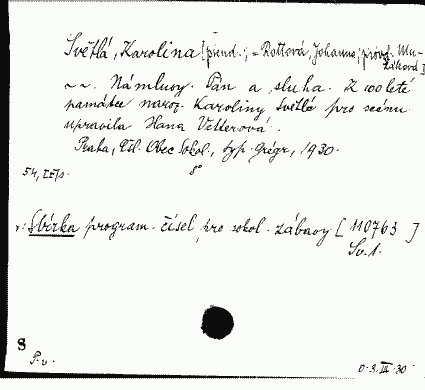 Světlá, Karolina [pseud.; = Rottová, Johanna; provd. Mu-
žáková]
~~. Námluvy. Pán a sluha. K 100leté
památce naroz. Karoliny Světlé pro scénu
upravila Hana Vetterová.
Praha, Čsl. Obec Sokol., typ. Grégr, 1930.
8°
v: Sbírka program. čísel pro sokol. zábavy [110763]
Sv. 1.
8
P. v.
D. 9. III. 30